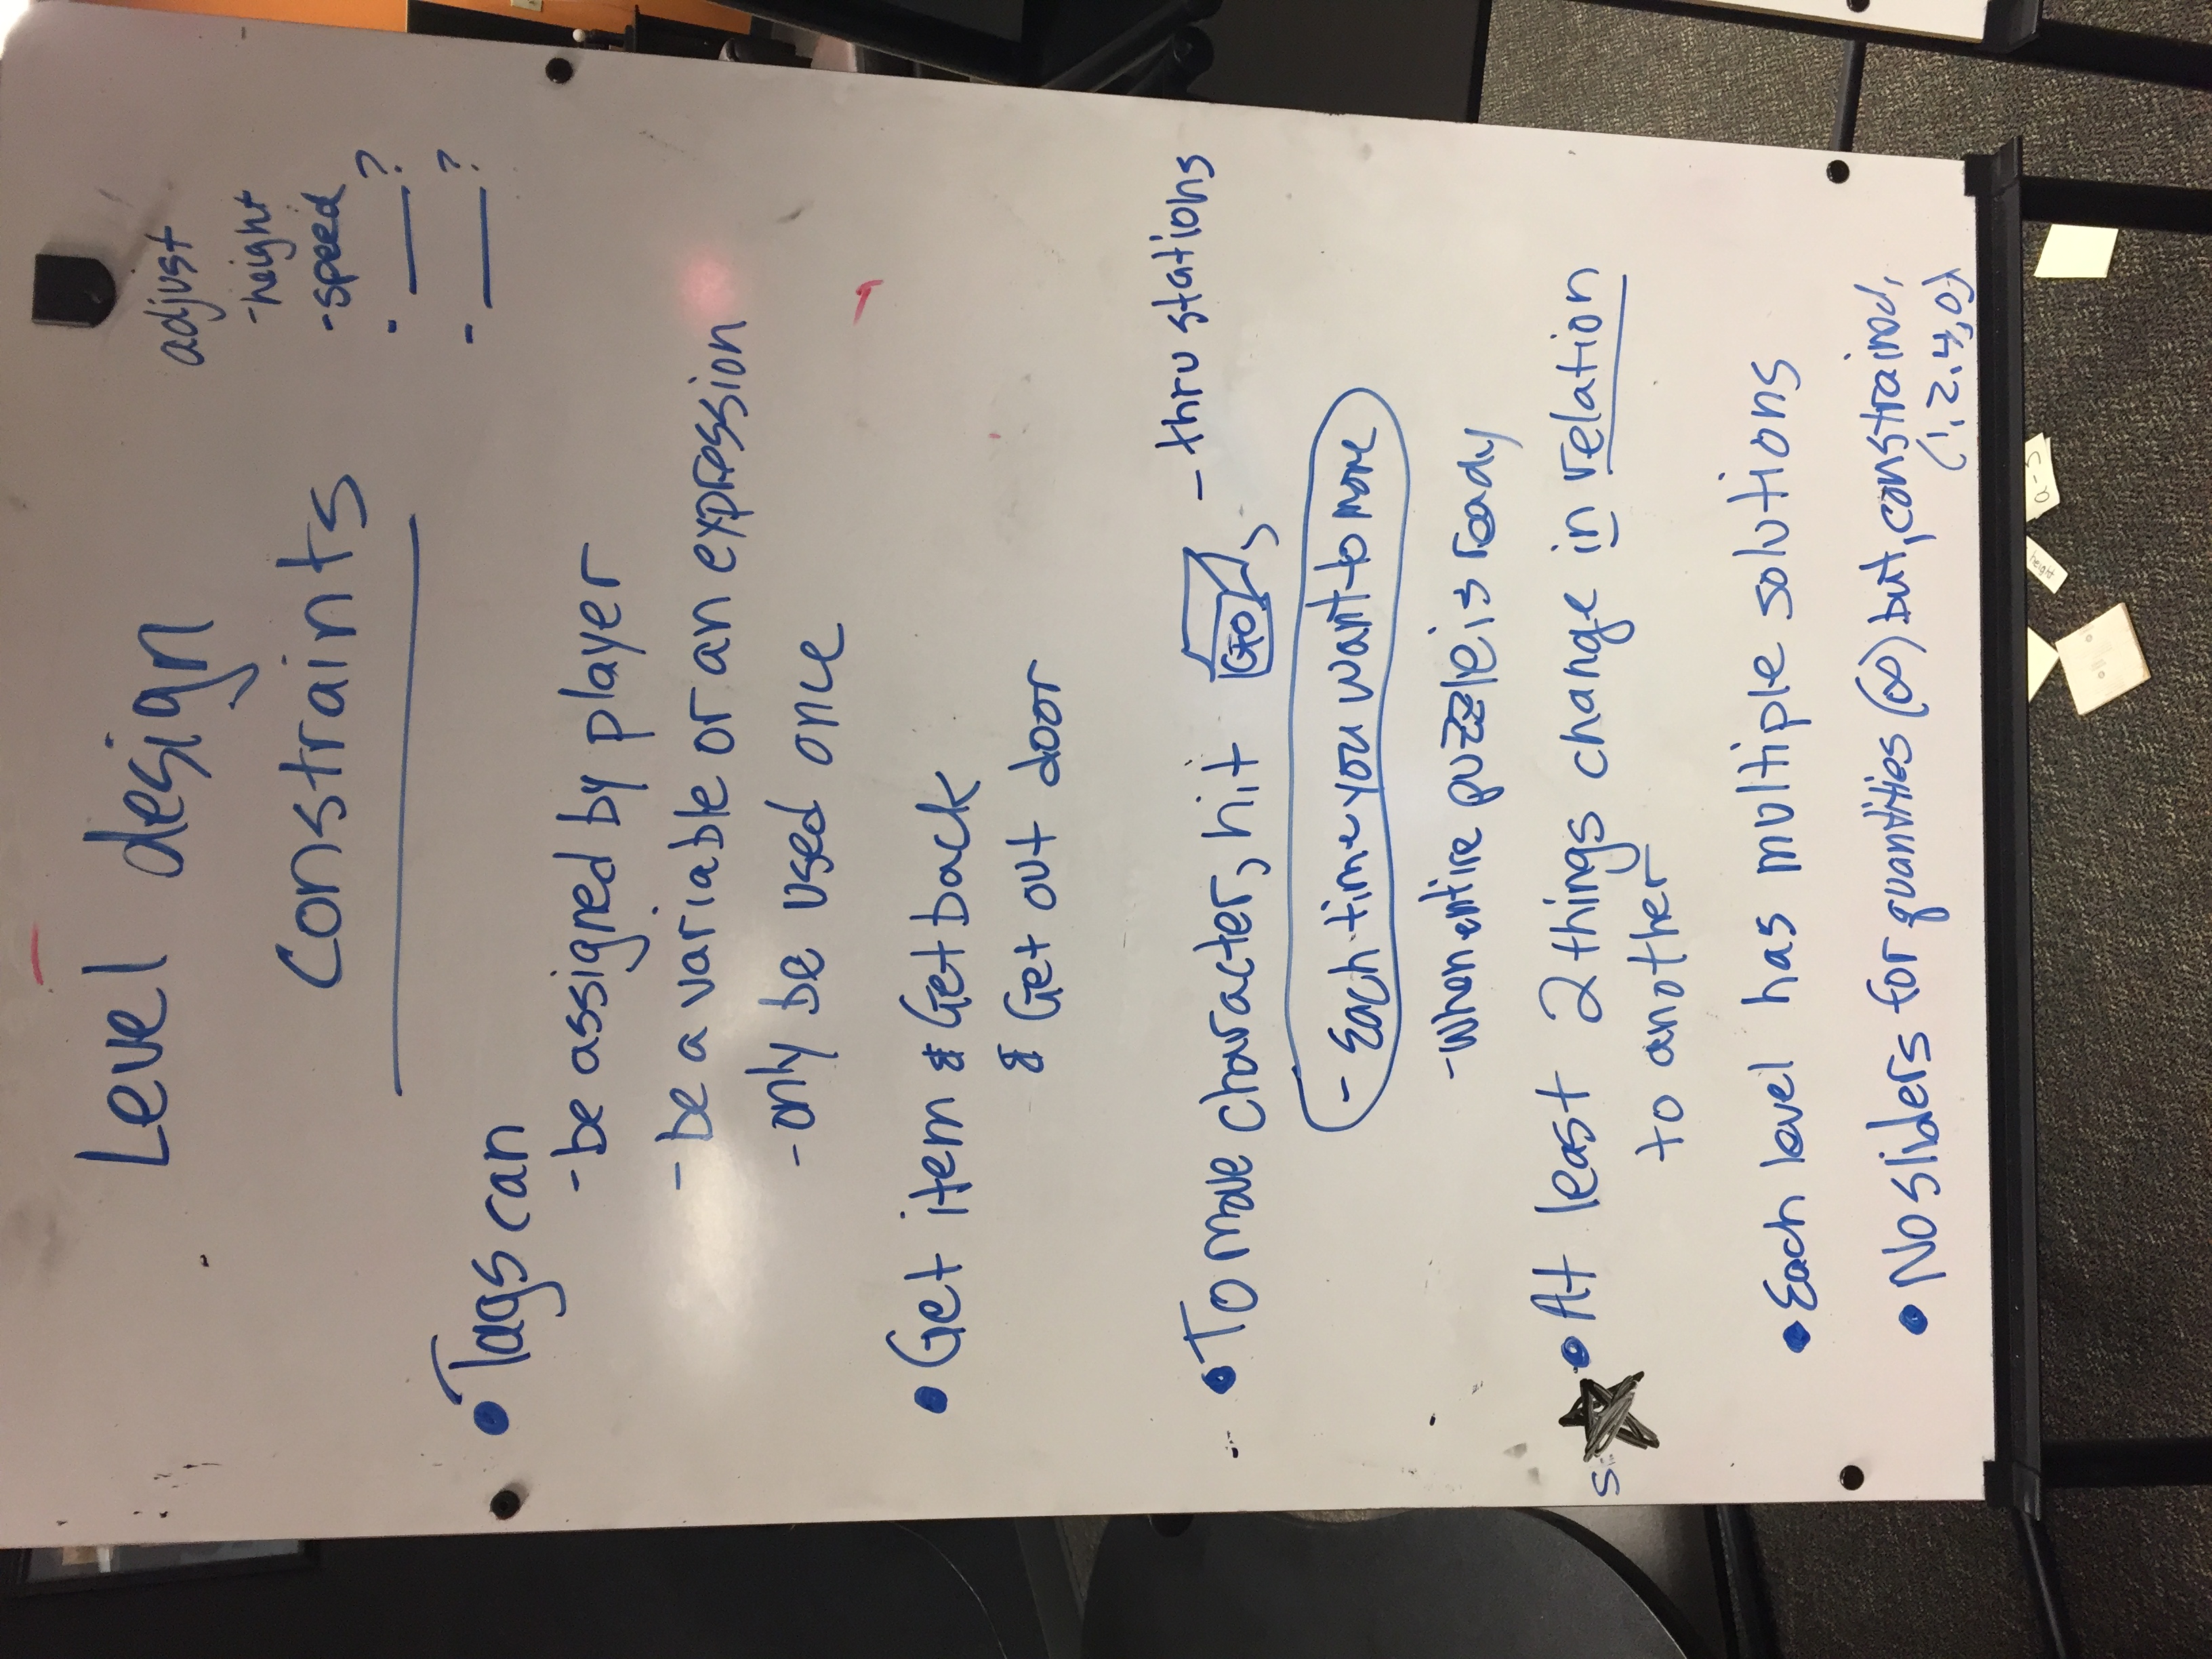 Level design
Constraints
adjust
-height
-speed
- ___?
- ___?
• Tags can
- be assigned by player
- be a variable or an expression
- only be used once
• Get item & Get back
& Get out door
• To move character, hit GO,
- thru stations
- Each time you want to move
- when entire puzzle is ready
• At least 2 things change in relation
to another
• Each level has multiple solutions
• No sliders for quantities (∞) but, constrained,
(1, 2, 4, 0)
a-5